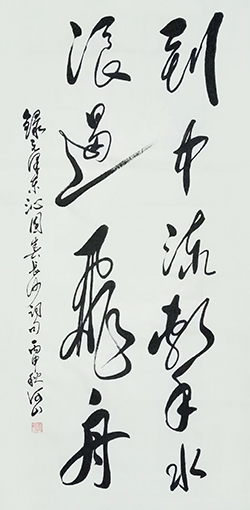 到中流击水
浪遏飞舟
录毛泽东沁园春长沙词句丙申秋河山